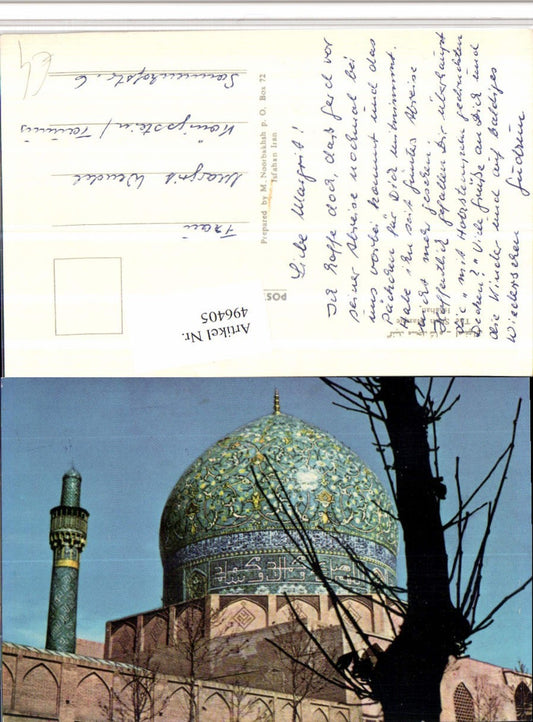 Liebe Margrit!
Ich hoffe doch, dass Gerd vor
seiner Abreise nochmal bei
uns vorbei kommt und das
Päckchen für Dich mitnimmt.
Habe ihn seit Judiths Abreise
nicht mehr gesehen.
Hoffentlich gefallen Dir überhaupt
die „mit Holzstempeln gedruckten
Decken? Viele Grüße an Dich und
die Kinder und auf baldiges
Wiedersehen Gudrun
Prepared by M. Noorbakhsh p. O. Box 72
Isfahan Iran
POST
Frau
Margrit Wendel
Königstein / Taunus
Sonnenhofstr. 6
Artikel Nr.
496405